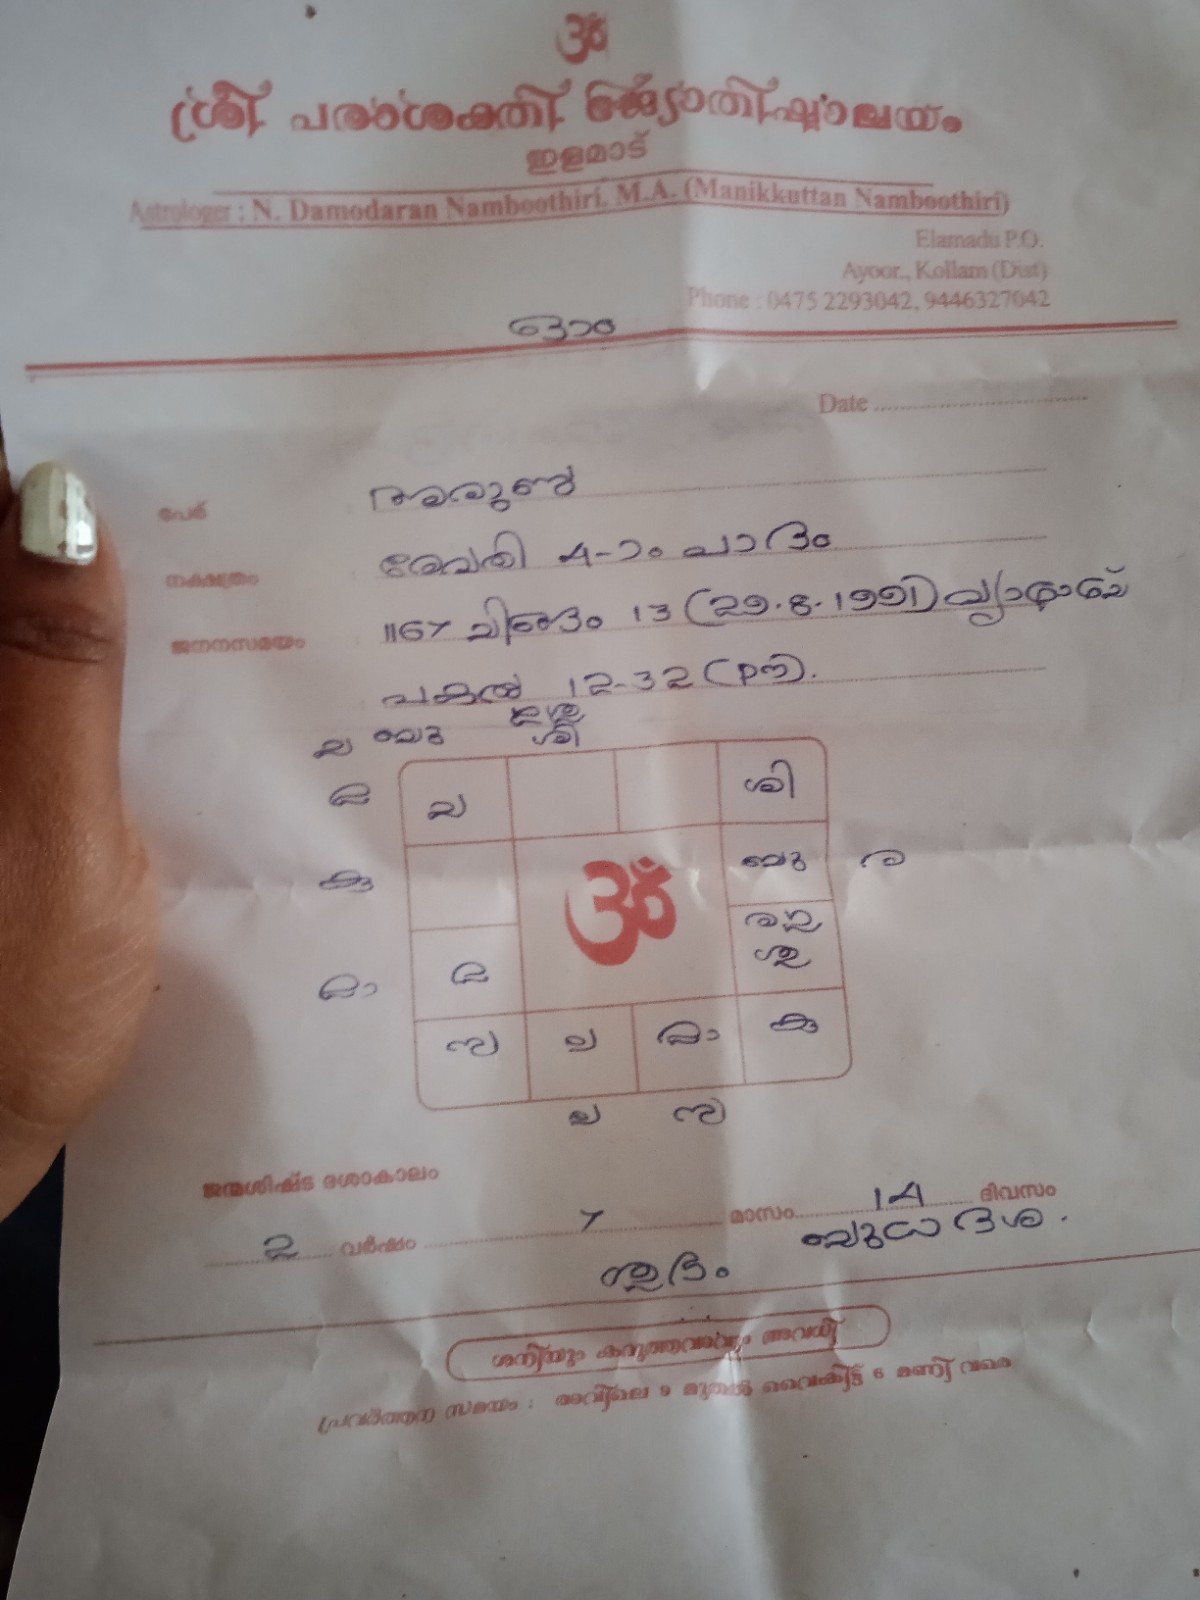 ॐ
ശ്രീ പരാശക്തി ജ്യോതിഷാലയം
ഇളമാട്
Astrologer : N. Damodaran Namboothiri. M.A. (Manikkuttan Namboothiri)
Elamadu P.O.
Ayoor., Kollam (Dist)
Phone : 0475 2293042, 9446327042
ഓം
Date
പേര് : അരുൺ
നക്ഷത്രം : രേവതി 4-ാം പാദം
ജനനസമയം : 1167 ചിങ്ങം 13 (29.8.1991) വ്യാഴാഴ്ച
പകൽ 12-32 (pm).
ച ബു
ശി
മ ച ശി
കു ബു ര
ॐ
മാ മ
സ ല മാ കു
ല സ
ജന്മശിഷ്ട ദശാകാലം
2 വർഷം 7 മാസം 14 ദിവസം
ബുധ ദശ.
ശുഭം
ശനിയും കറുത്തവാവും അവധി
പ്രവർത്തന സമയം : രാവിലെ 9 മുതൽ വൈകിട്ട് 6 മണി വരെ